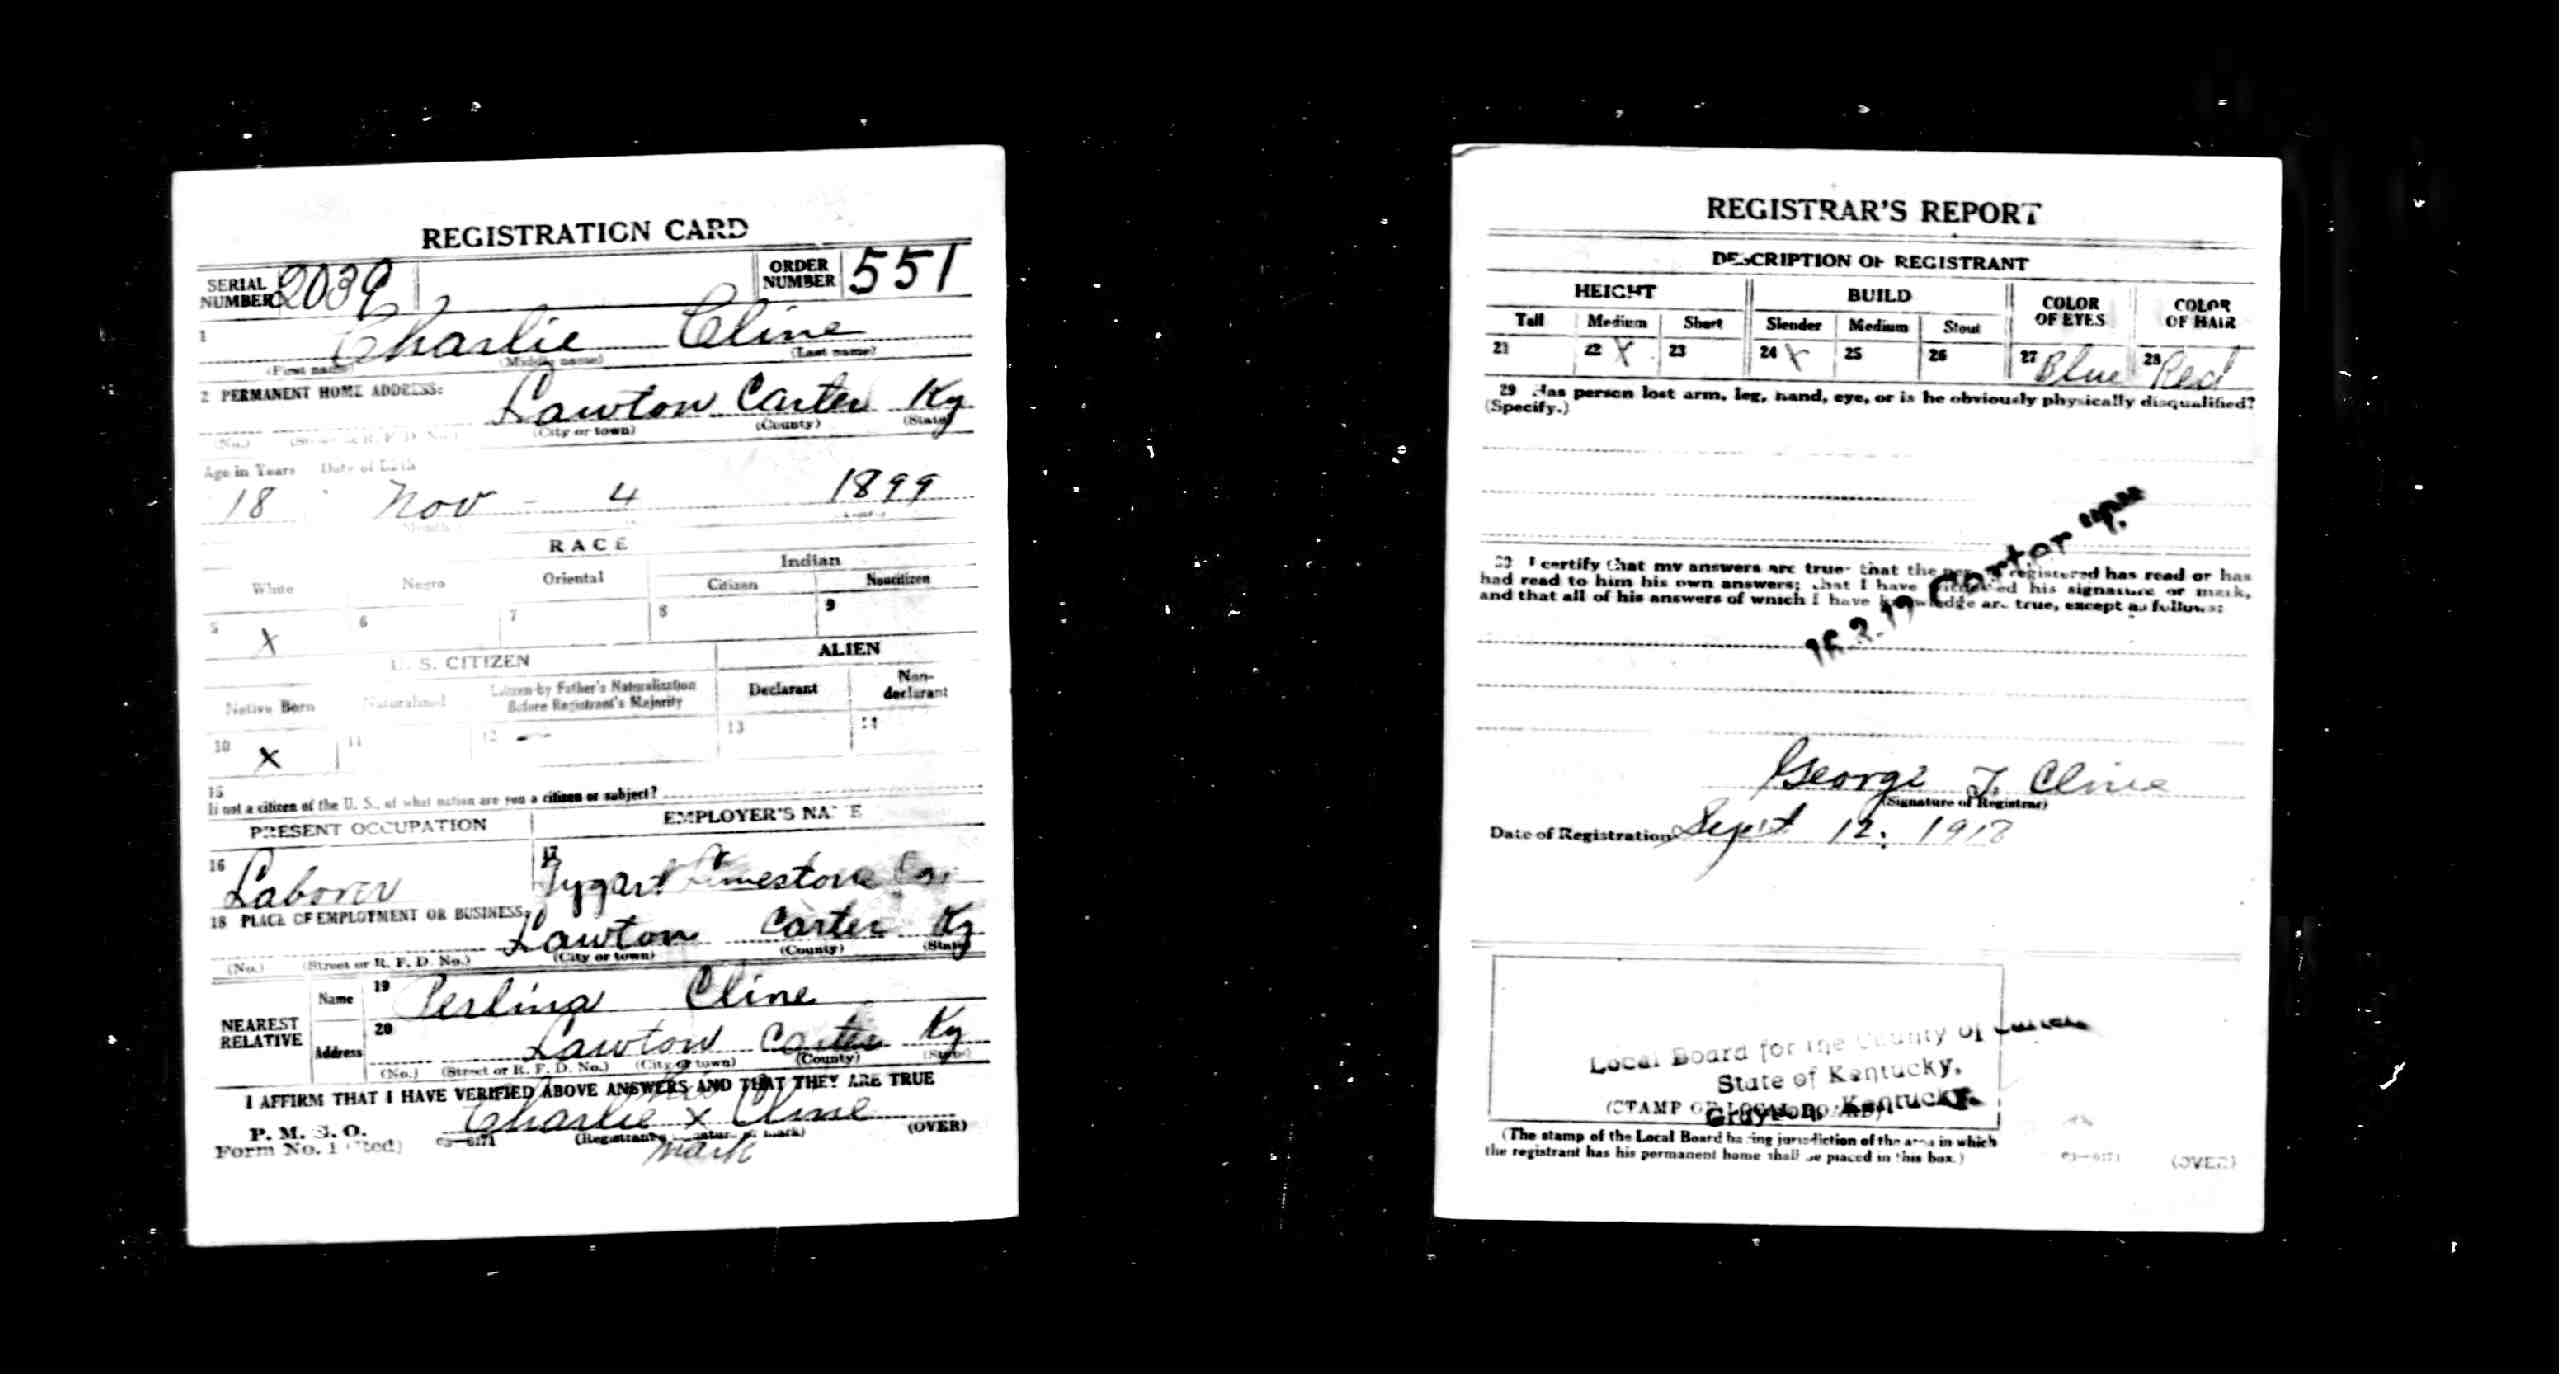 REGISTRATION CARD
SERIAL NUMBER 2039 ORDER NUMBER 551
1 Charlie Cline
(First name) (Middle name) (Last name)
2 PERMANENT HOME ADDRESS: Lawton Carter Ky
(No.) (Street or R. F. D. No.) (City or town) (County) (State)
Age in Years Date of Birth
18 Nov - 4 1899
RACE
White Negro Oriental Indian
Citizen Noncitizen
5 X 6 7 8 9
U. S. CITIZEN ALIEN
Native Born Naturalized Citizen by Father's Naturalization Before Registrant's Majority Declarant Non-declarant
10 X 11 12 13 14
15
If not a citizen of the U. S., of what nation are you a citizen or subject?
PRESENT OCCUPATION EMPLOYER'S NAME
16 Laborer 17 Tygart Limestone Co.
18 PLACE OF EMPLOYMENT OR BUSINESS: Lawton Carter Ky
(No.) (Street or R. F. D. No.) (City or town) (County) (State)
NEAREST RELATIVE Name 19 Perlina Cline
Address 20 Lawton Carter Ky
(No.) (Street or R. F. D. No.) (City or town) (County) (State)
I AFFIRM THAT I HAVE VERIFIED ABOVE ANSWERS AND THAT THEY ARE TRUE
his
Charlie X Cline
P. M. G. O.
Form No. 1 (Red) 03—6171 (Registrant's signature or mark) (OVER)
mark
REGISTRAR'S REPORT
DESCRIPTION OF REGISTRANT
HEIGHT BUILD COLOR OF EYES COLOR OF HAIR
Tall Medium Short Slender Medium Stout
21 22 X 23 24 X 25 26 27 Blue 28 Red
29 Has person lost arm, leg, hand, eye, or is he obviously physically disqualified?
(Specify.)
30 I certify that my answers are true; that the person registered has read or has
had read to him his own answers; that I have witnessed his signature or mark,
and that all of his answers of which I have knowledge are true, except as follows:
16-2-17 Carter
George T. Cline
(Signature of Registrar)
Date of Registration Sept 12, 1918
Local Board for the County of Carter
State of Kentucky,
(STAMP OF LOCAL BOARD)
Grayson, Kentucky.
(The stamp of the Local Board having jurisdiction of the area in which
the registrant has his permanent home shall be placed in this box.)
03—6171 (OVER)